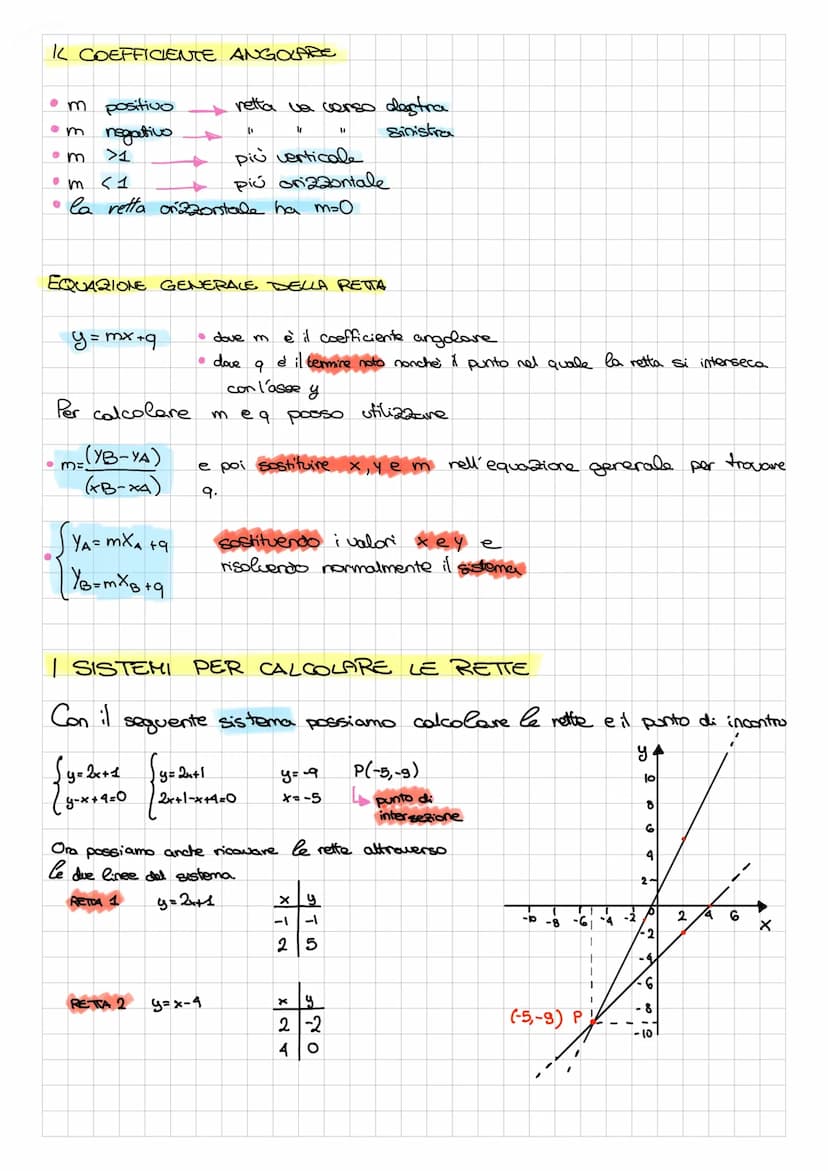 IL COEFFICIENTE ANGOLARE
• m positivo → retta va verso destra
• m negativo → " " " sinistra
• m >1 → più verticale
• m <1 → piú orizzontale
• la retta orizzontale ha m=0
EQUAZIONE GENERALE DELLA RETTA
y=mx+q • dove m è il coefficiente angolare
• dove q è il termine noto nonchè il punto nel quale la retta si interseca
con l'asse y
Per calcolare m e q posso utilizzare
• m=(yB-yA)/(xB-xA) e poi sostituire x,y e m nell'equazione generale per trovare
q.
• { yA=mxA+q sostituendo i valori x e y e
yB=mxB+q risolvendo normalmente il sistema
I SISTEMI PER CALCOLARE LE RETTE
Con il seguente sistema possiamo calcolare le rette e il punto di incontro
{ y=2x+1 { y=2x+1 y=-9 P(-5,-9)
y-x+4=0 2x+1-x+4=0 x=-5 ↳ punto di
intersezione
Ora possiamo anche ricavare le rette attraverso
le due linee del sistema
RETTA 1 y=2x+1 x y
-1 -1
2 5
RETTA 2 y=x-4 x y
2 -2
4 0
y
10
8
6
4
2
-10 -8 -6 -4 -2 0 2 4 6 x
-2
-4
-6
-8
-10
(-5,-9) P